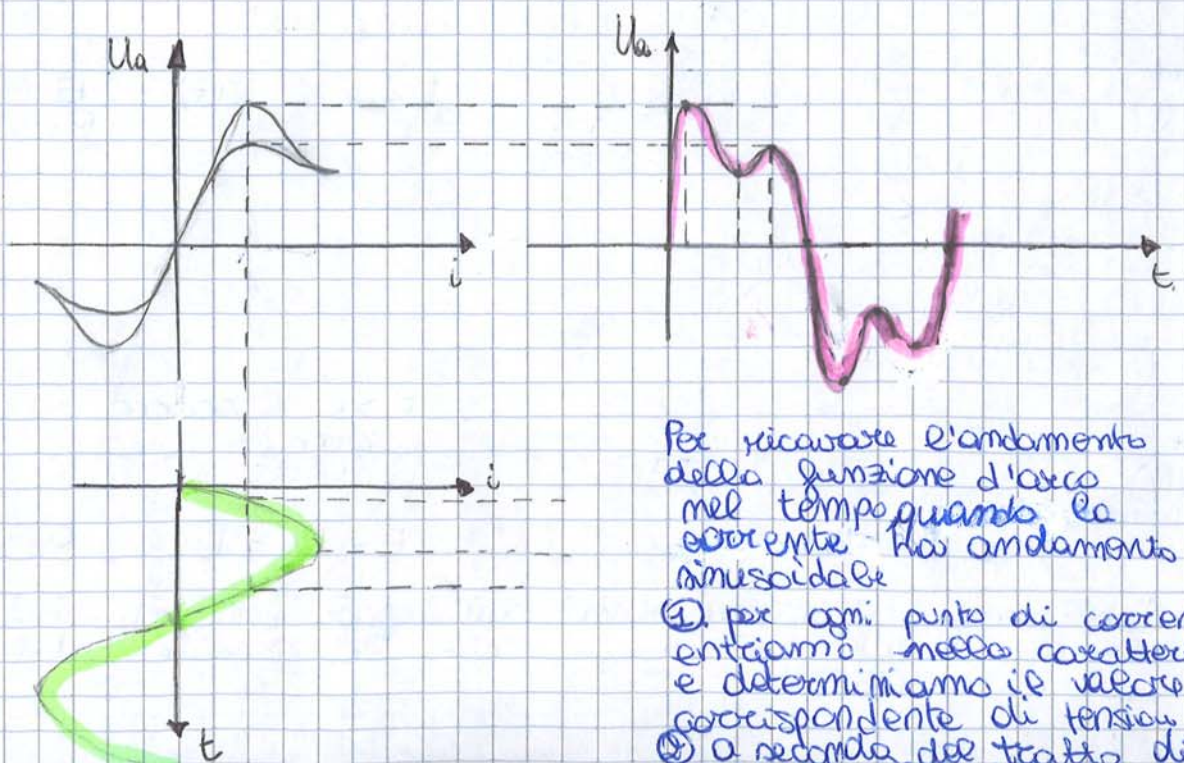 Ua
i
Ua
t
i
t
Per ricavare l'andamento
della funzione d'arco
nel tempo quando la
corrente ha andamento
sinusoidale
① per ogni punto di corren
entriamo nella caratter
e determiniamo il valore
corrispondente di tension
② a seconda del tratto di